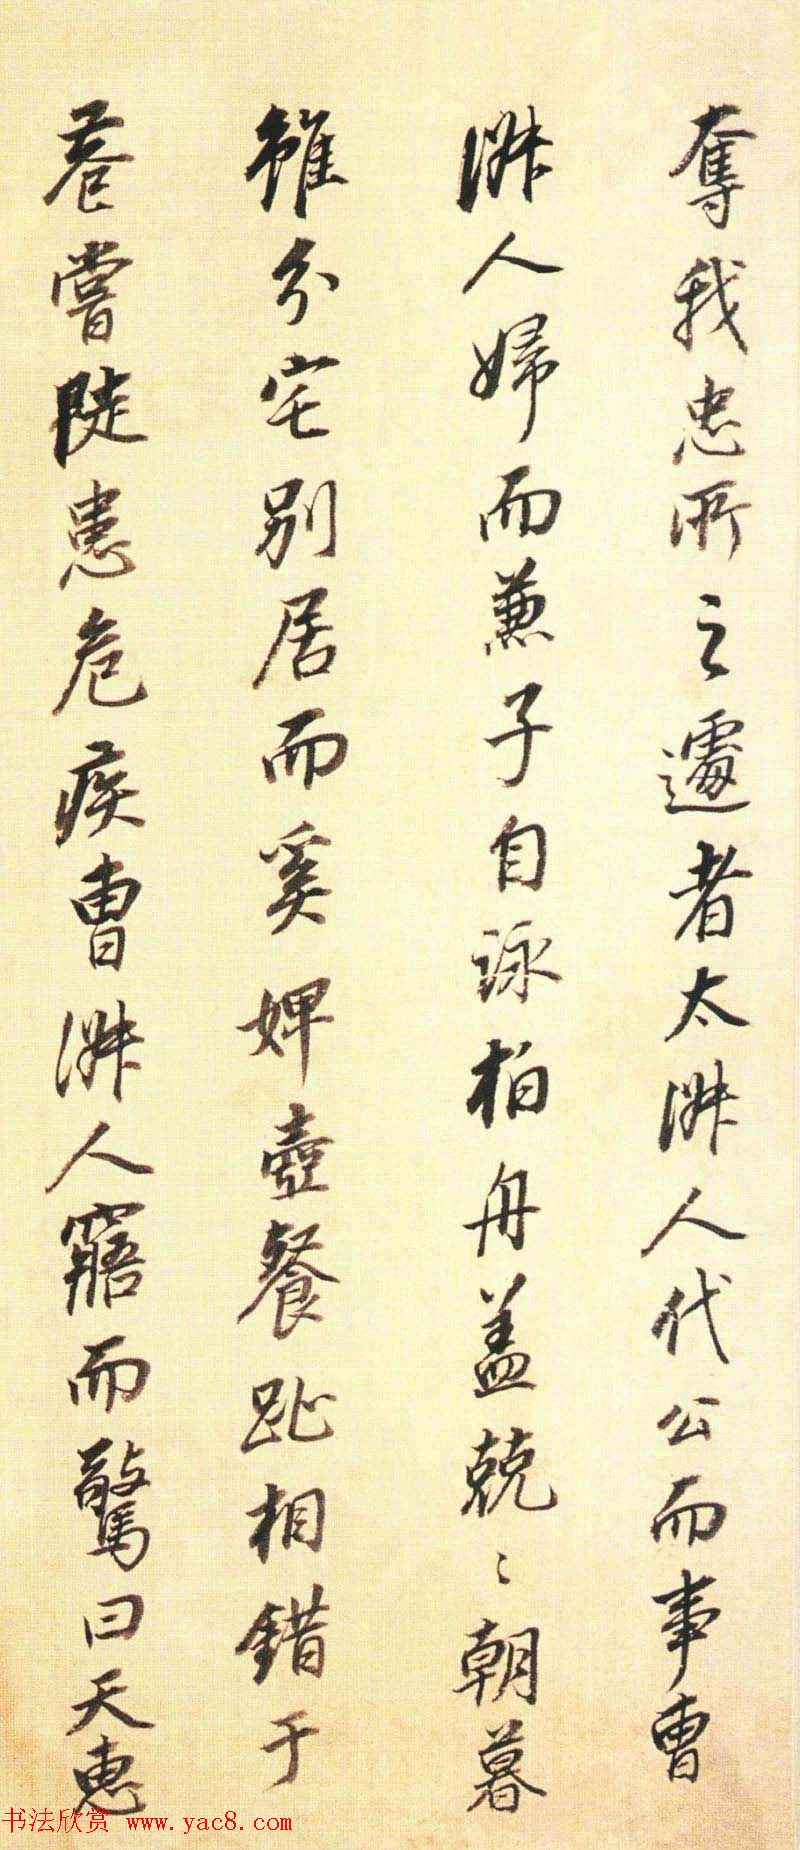 奪我忠所之遽者太淑人代公而事曹
淑人婦而兼子自詠柏舟盖兢〻朝暮
雖分宅別居而奚婢壺餐趾相錯于
巷嘗陡患危疾曹淑人寤而驚曰天惠
书法欣赏 www.yac8.com